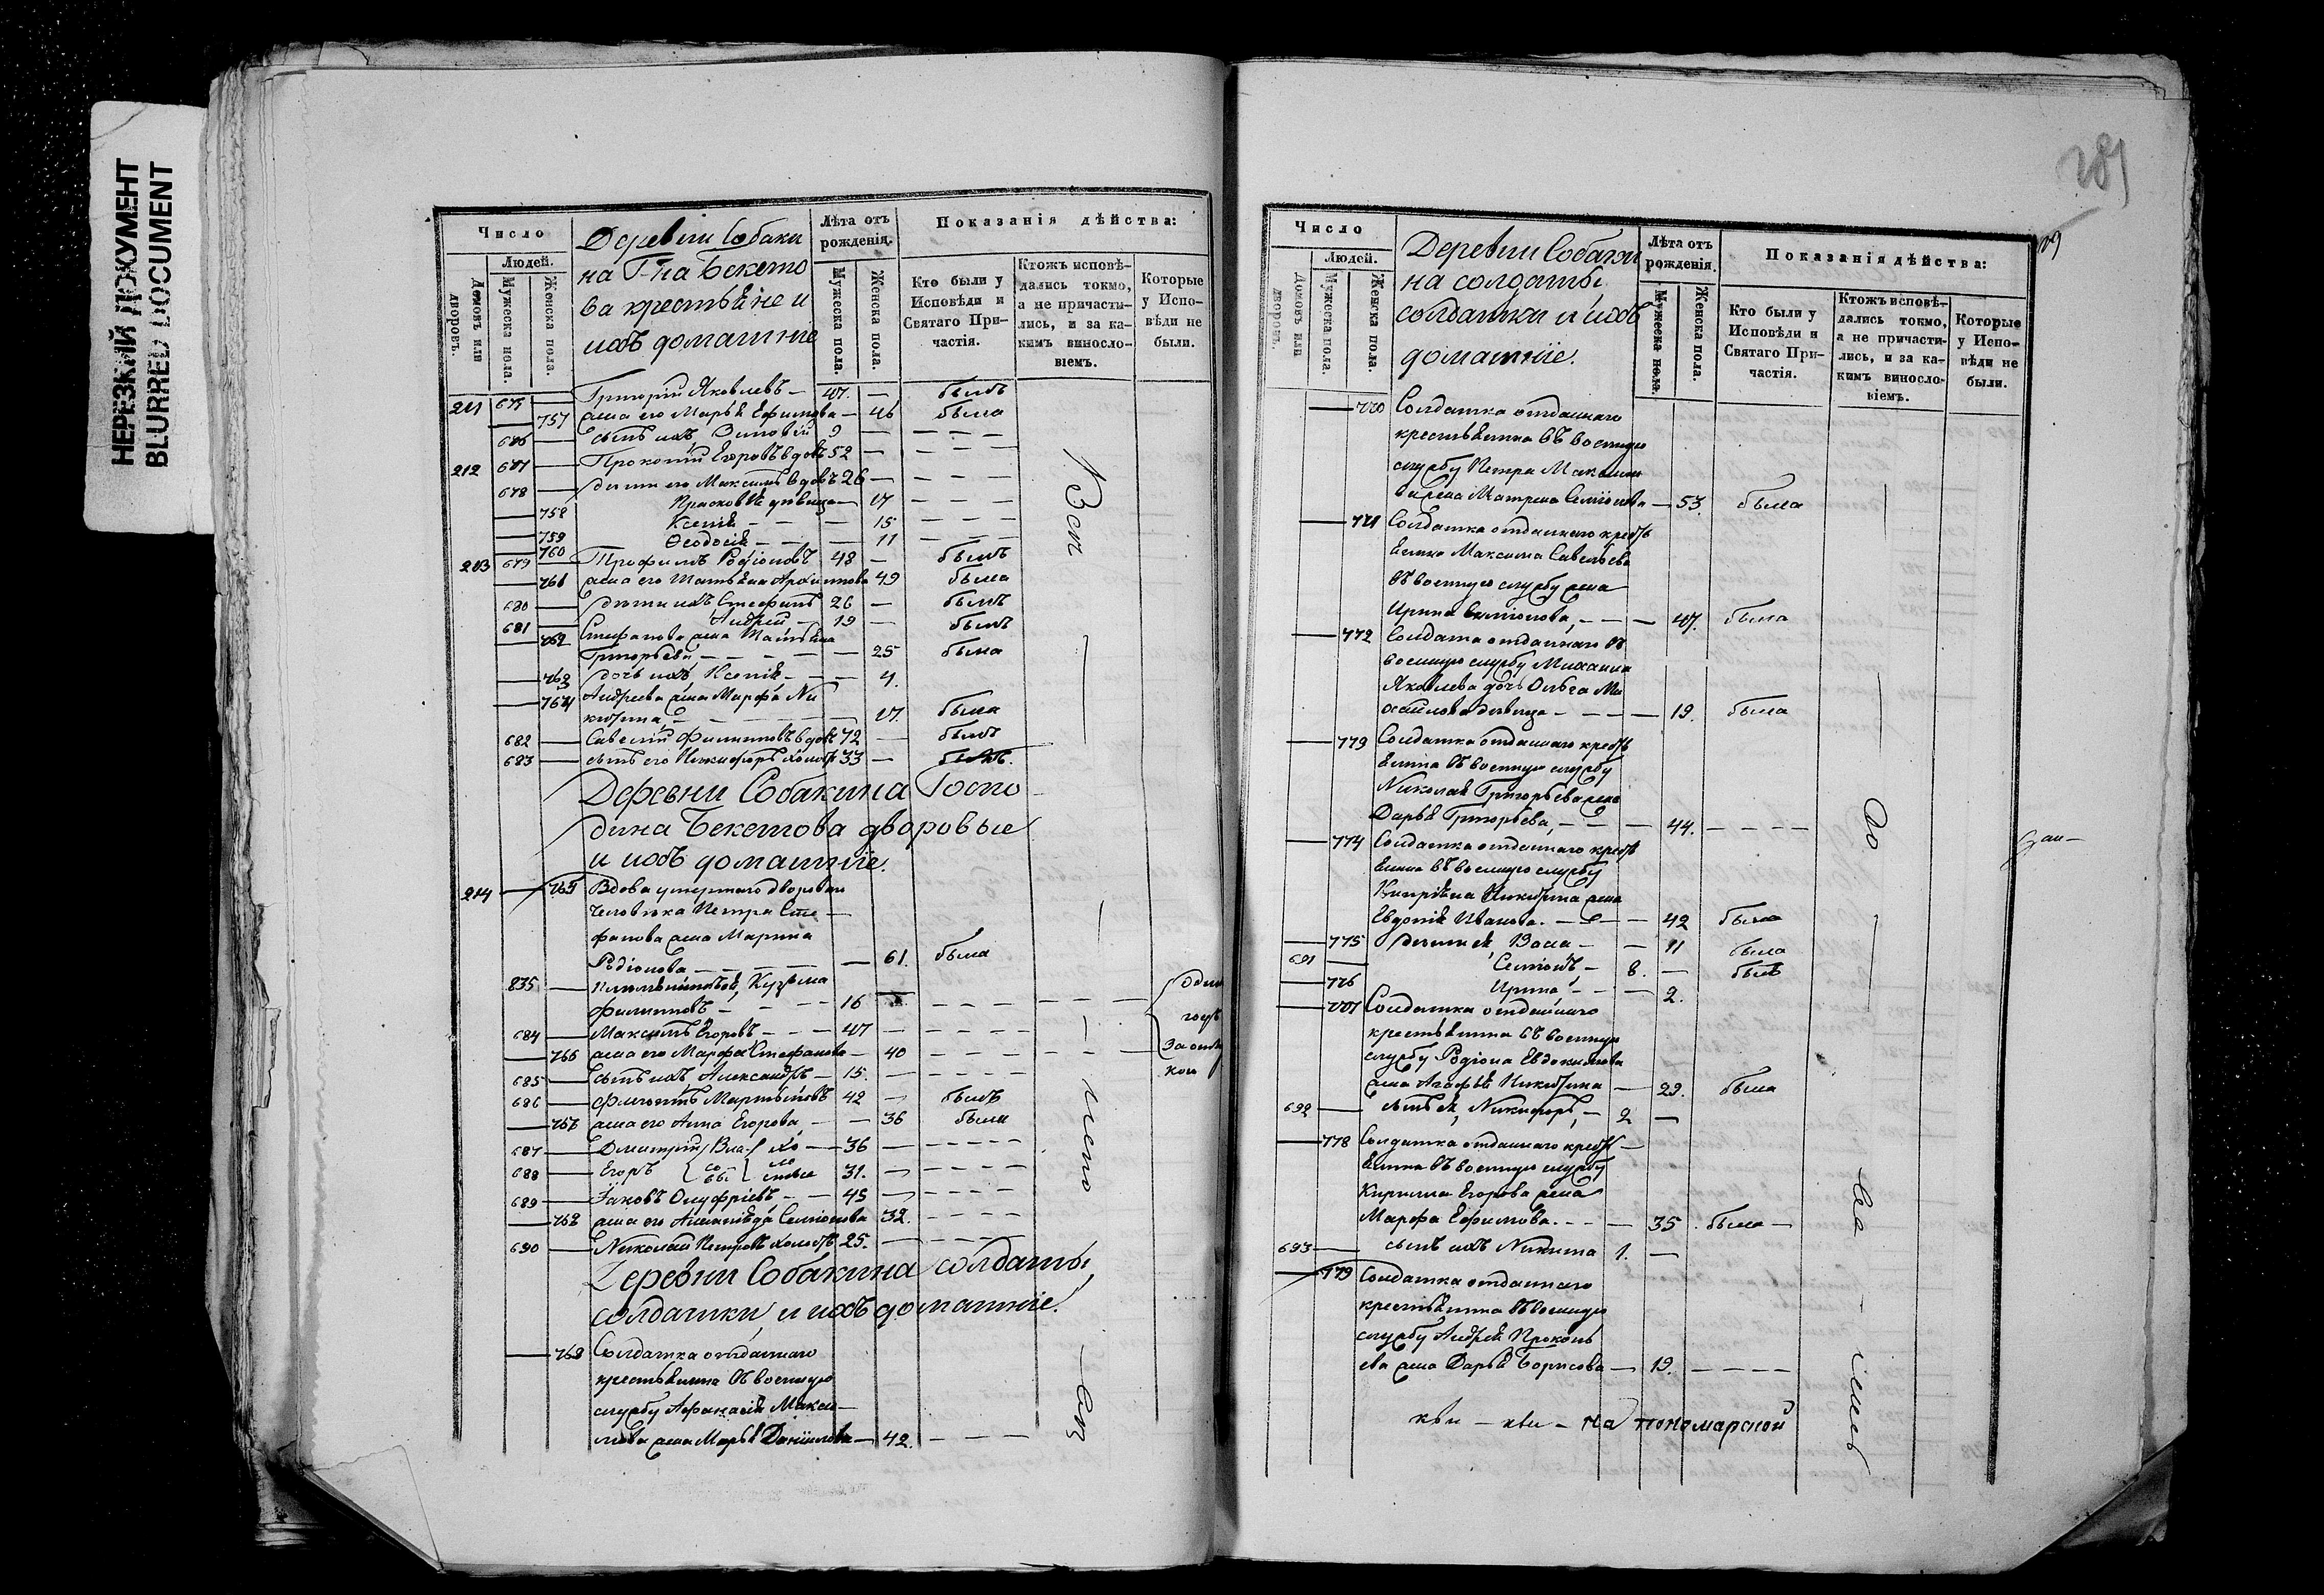 НЕРЕЗКИЙ ДОКУМЕНТ
BLURRED DOCUMENT
Число
Людей.
Домовъ или дворовъ.
Мужеска пола.
Женска пола.
Деревни Собаки
на Г-на Бекето
ва крестьяне и
ихъ домашніе
Лѣта отъ рожденія.
Мужеска пола.
Женска пола.
Показанія дѣйства:
Кто были у Исповѣди и Святаго Причастія.
Ктожъ исповѣдались токмо, а не причастились, и за какимъ винословіемъ.
Которые у Исповѣди не были.
211 675 — Григорій Яковлевъ — 47. — былъ
— 757 жена его Марья Ефимова — 46 была
676 — сынъ ихъ Зиновій 9 — — — —
212 677 — Прокопій Егоровъ вдовъ 52 — — — —
678 — дети его Максимъ вдовъ 26 — — — —
— 758 Прасковья дѣвица — 17 — — —
— 759 Ксенія — — — 15 — — —
— 760 Ѳеодосія — — — 11 — — —
213 679 — Трофимъ Родіоновъ 48 — былъ
— 761 жена его Татьяна Архипова 49 была
680 — дѣти ихъ Стефанъ 26 — былъ
681 — Андрей — 19 — былъ
— 762 Стефанова жена Татьяна
Григорьева, — — — — 25 была
— 763 дочь ихъ Ксенія — — — 4.
— 764 Андреева жена Марфа Ни
китина, — — — — 17. была
682 — Савелій Филиповъ вдовъ 72 — былъ
683 — сынъ его Никифоръ холостъ 33 — былъ.
Деревни Собакина Госпо
дина Бекетова дворовые
и ихъ домашніе.
214 — 765 Вдова умершаго двороваго
человѣка Петра Сте —
фанова жена Марина
Родіонова — — — — 61. была
835 — Кузьма
Филиповъ — — — 16 — — — —
Одинъ
684 — Максимъ Егоровъ — — — 47 — — — —
766 жена его Марфа Стефанова — 40 — — — —
685 — сынъ ихъ Александръ — 15. — — — —
686 — Филиппъ Мартыновъ 42 — былъ
— 767 жена его Анна Егорова, — — 36 была
687 — Дмитрій Вла- хо — 36 — — — —
688 — Егоръ со вы ло стые 31. — — — —
689 — Яковъ Онуфріевъ — — 45 — — — —
— 768 жена его Семіонова 32. — — — —
690 — Николай Петровъ холостъ 25. — — — —
Деревни Собакина солдаты,
солдатки, и ихъ домашніе.
— 769 Солдатка отданнаго
крестьянина въ военную
службу Афанасія Макси —
мова жена Марья Даніилова — 42. — — —
281
Число
Людей.
Домовъ или дворовъ.
Мужеска пола.
Женска пола.
Деревни Собаки
на солдаты,
солдатки и ихъ
домашніе.
Лѣта отъ рожденія.
Мужеска пола.
Женска пола.
Показанія дѣйства:
Кто были у Исповѣди и Святаго Причастія.
Ктожъ исповѣдались токмо, а не причастились, и за какимъ винословіемъ.
Которые у Исповѣди не были.
— 770 Солдатка отданнаго
крестьянина въ военную
службу Петра Максимо
ва жена Матрена Семіонова — 53. была
— 771 Солдатка отданнаго кресть
янина Максима Савельева
въ военную службу жена
Ирина Семіонова, — — — 47. была
— 772 Солдата отданнаго въ
военную службу Михаила
Яковлева дочь Ольга Ми
хайлова дѣвица — — — — 19. была
— 773 Солдатка отданнаго кресть
янина въ военную службу
Николая Григорьева жена
Дарья Григорьева, — — — 44. — — — —
— 774 Солдатка отданнаго кресть
янина въ военную службу
Кипріяна Никитина жена
Евдокія Иванова. — — — 42 была
— 775 дѣти ея, — — 11 была
691 — Семіонъ, — 8. — былъ
— 776 Ирина, — — — 2.
— 777 Солдатка отданнаго
крестьянина въ военную
службу Родіона Евдокимова
жена Агафья Никитина — 29. была
692 — сынъ ея, Никифоръ, — 2 —
— 778 Солдатка отданнаго кресть —
янина въ военную службу
Кирилла Егорова жена
Марфа Ефимова. — — — 35 была —
693 — сынъ ихъ Никита 1. —
— 779 Солдатка отданнаго
крестьянина въ военную
службу Андрея Прокопь
ева жена Дарья Борисова — 19. — — — —
на пономарской